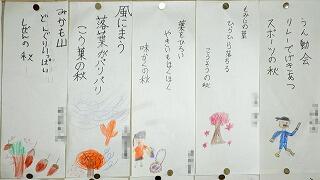 うん動会
リレーでげきあつ
スポーツの秋
もみじの葉
ひらひら落ちる
こうようの秋
葉をひろい
やきいもほくほく
味かくの秋
風にまう
落葉がパリパリ
こう葉の秋
みかも山
どんぐりいっぱい
しぜんの秋